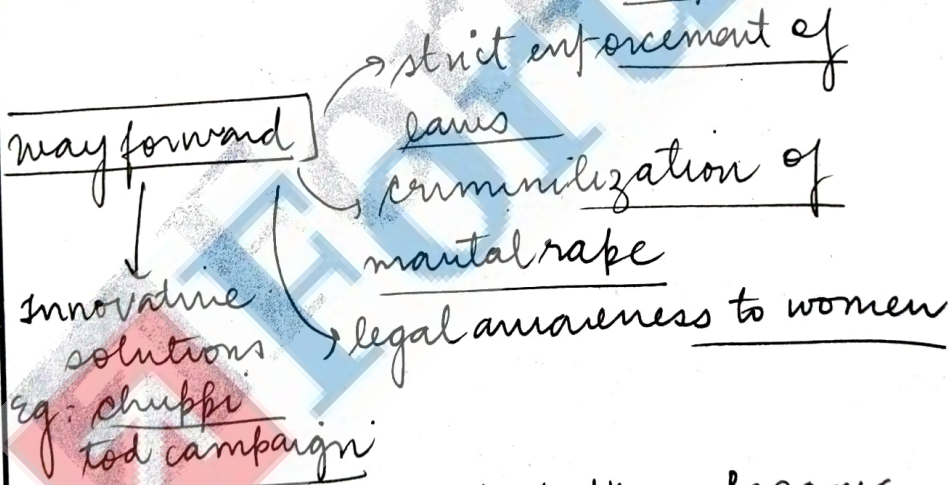 strict enforcement of
laws
way forward
criminilization of
marital rape
legal awareness to women
Innovative
solutions
Eg: chuppi
tod campaign